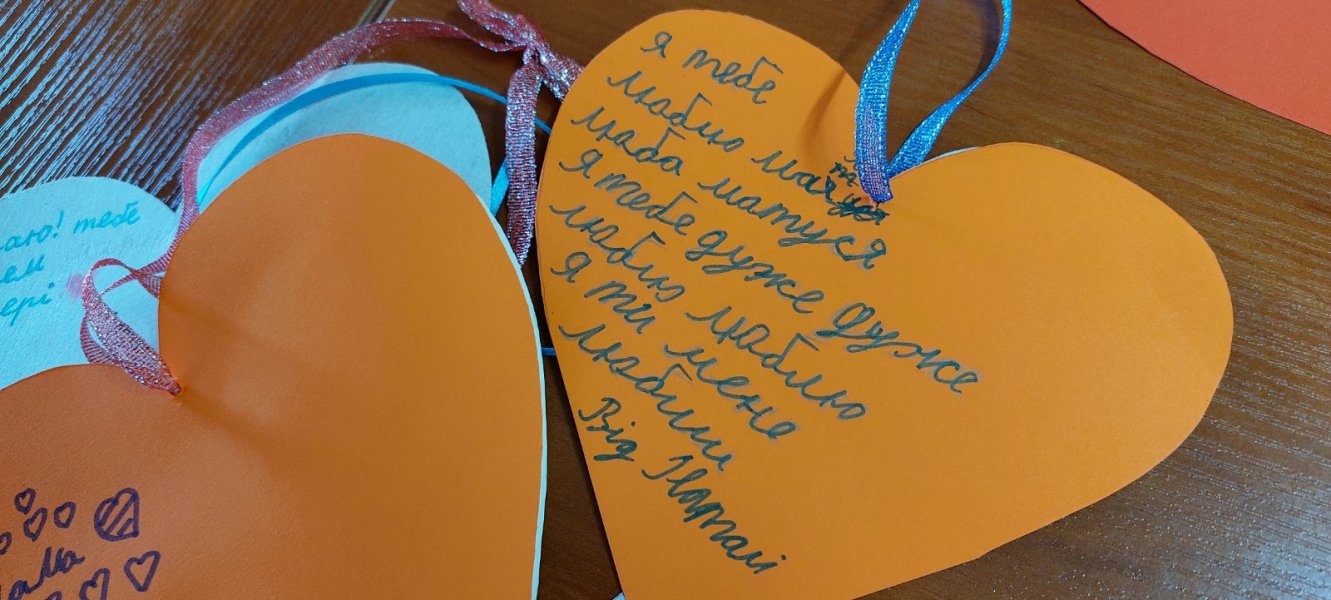 я тебе
люблю моя
люба матуся
я тебе дуже дуже
люблю люблю
я ти мене
любиш
Від Наталі
! тебе
ері